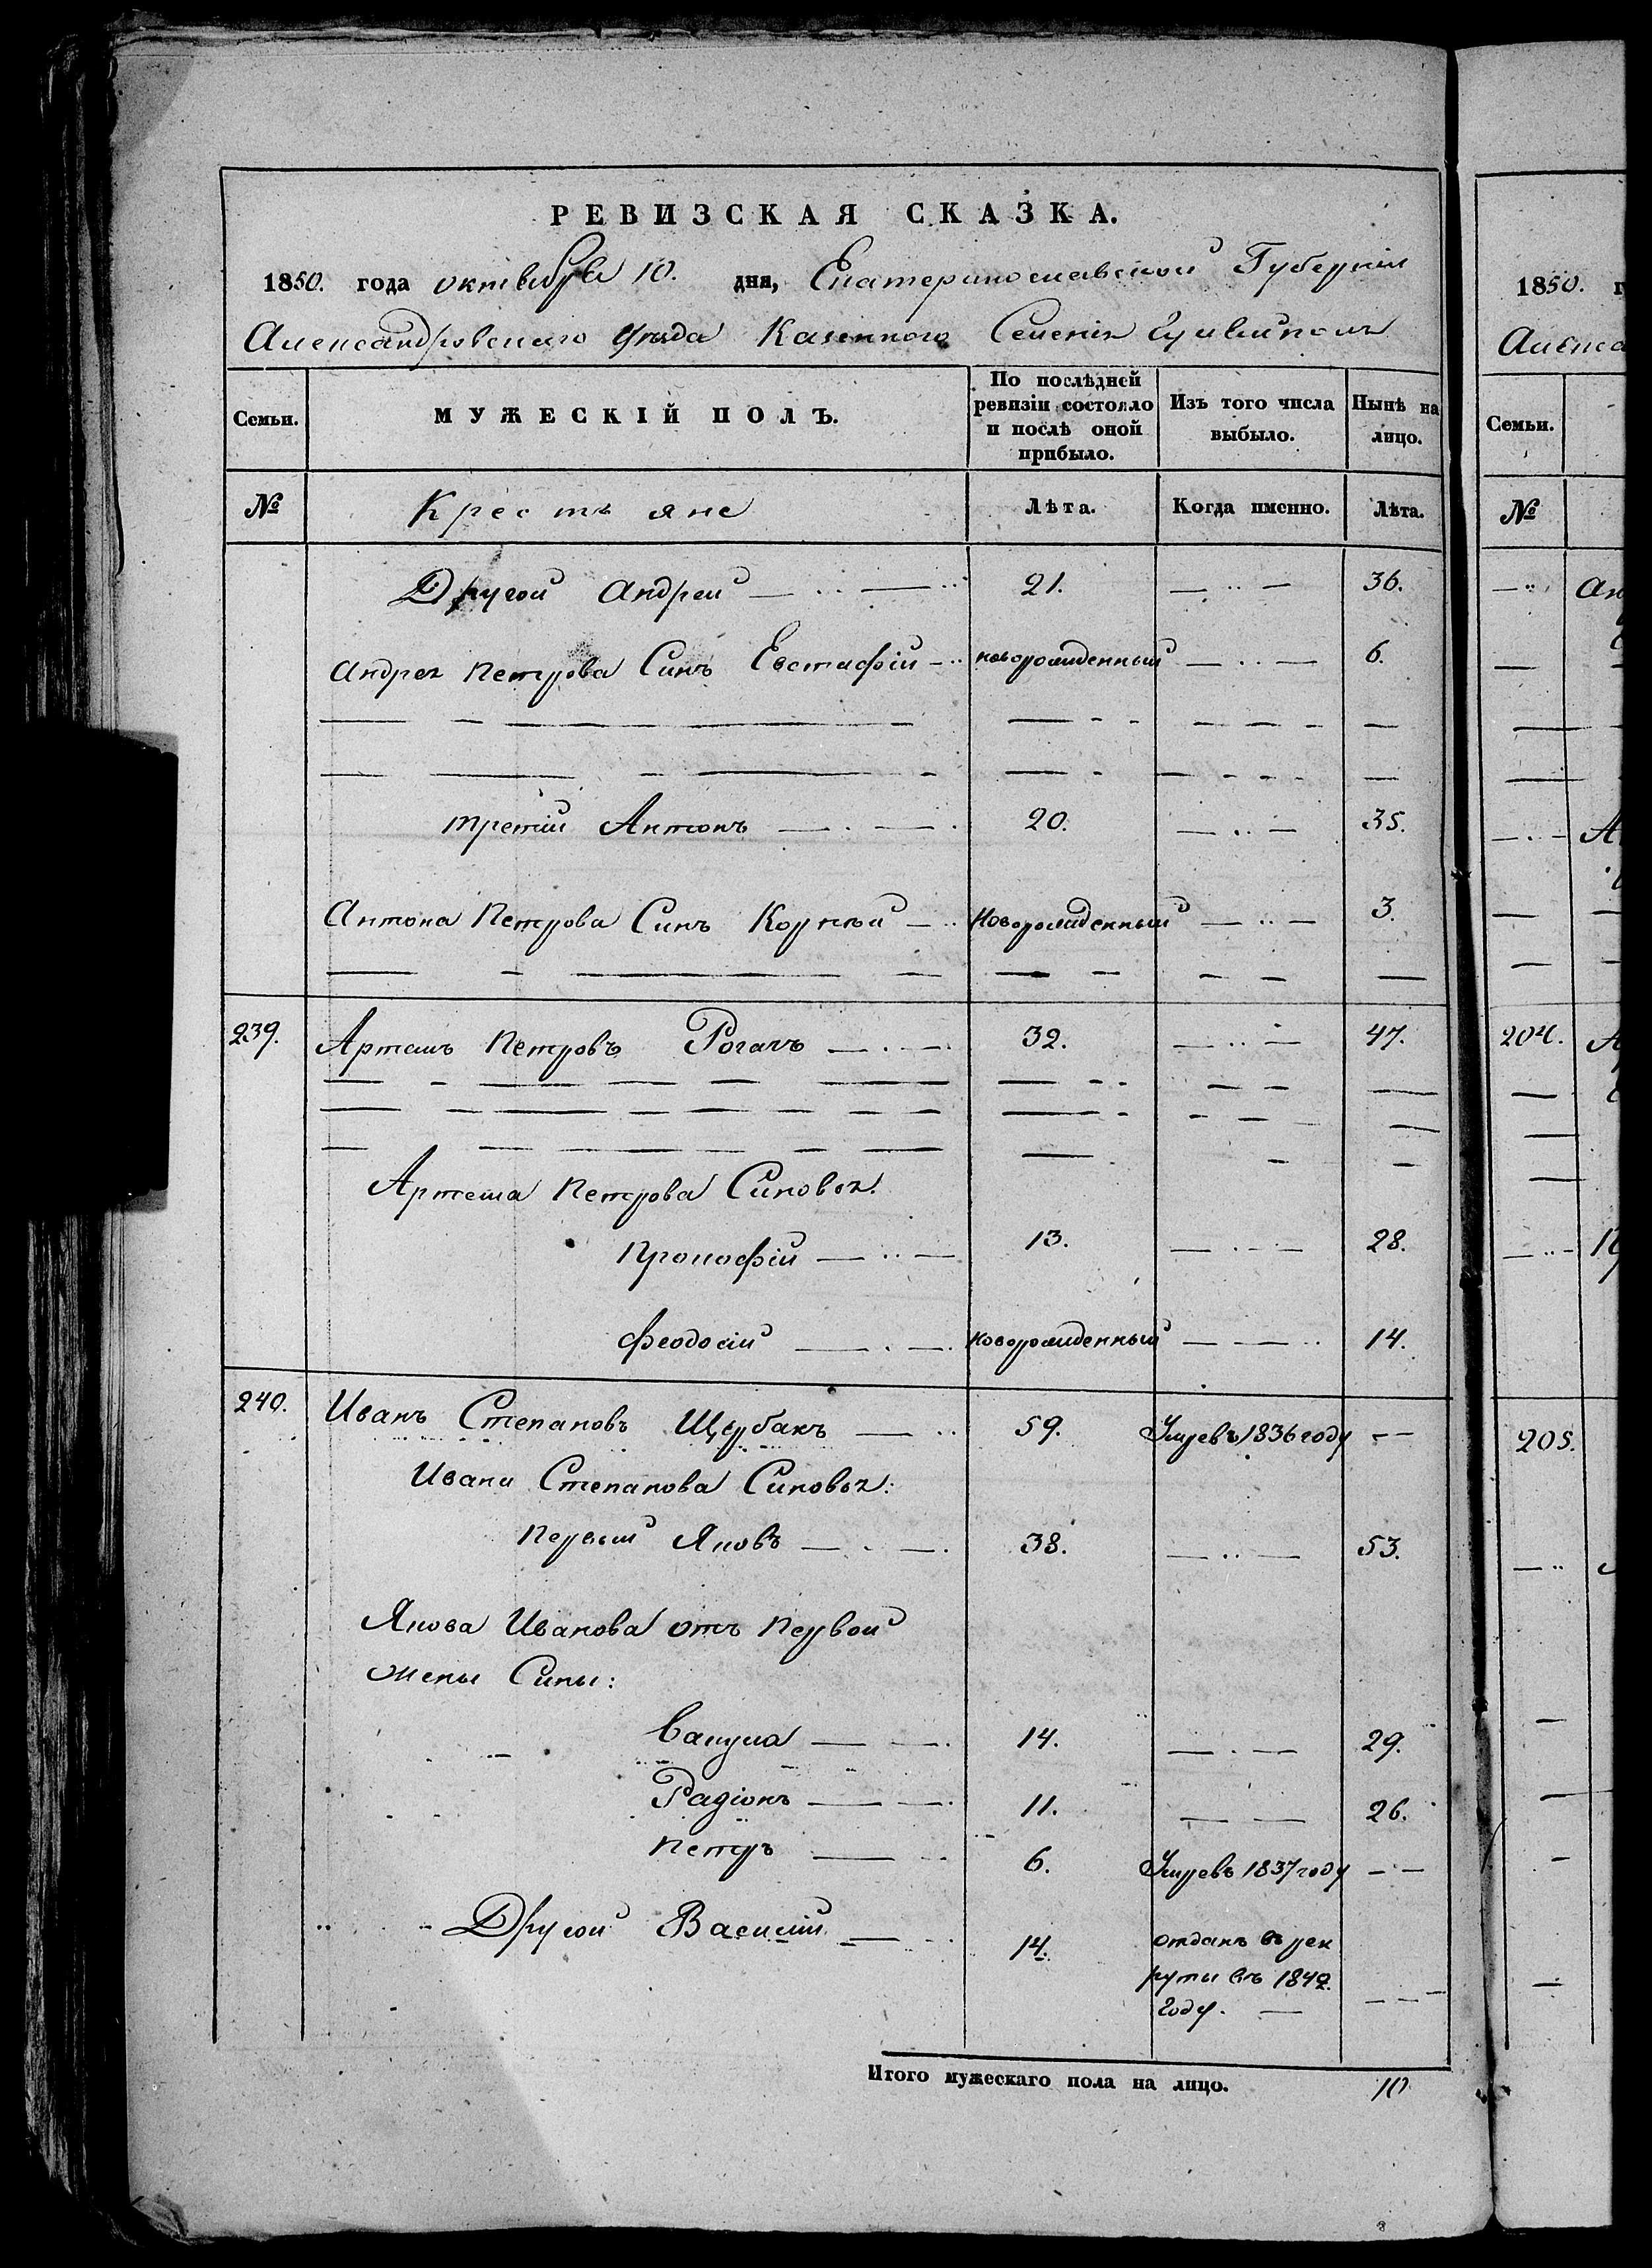 РЕВИЗСКАЯ СКАЗКА.
1850. года октября 10. дня, Екатеринославской Губернии
Александровского Уѣзда Казенного Селенія Гуляйполь
Семьи. МУЖЕСКІЙ ПОЛЪ. По послѣдней ревизіи состояло и послѣ оной прибыло. Изъ того числа выбыло. Нынѣ на лицо.
№ Крестьяне Лѣта. Когда именно. Лѣта.
Другой Андрей 21. 36.
Андрея Петрова Синъ Евстафій новорожденный 6.
третій Антонъ 20. 35.
Антона Петрова Синъ Корнѣй Новорожденный 3.
239. Артемъ Петровъ Рогачъ 32. 47.
Артема Петрова Синовья.
Прокофій 13. 28.
Феодосій новорожденный 14.
240. Иванъ Степановъ Щербакъ 59. Умревъ 1836 году
Ивана Степанова Синовья:
Первый Яковъ 38. 53.
Якова Иванова отъ первой
жены Сины:
Вакула 14. 29.
Радіонъ 11. 26.
Петръ 6. Умревъ 1837 году
Другой Василій 14. отданъ въ рек
руты въ 1842.
году.
Итого мужескаго пола на лицо. 10
1850. г
Алекса
Семьи.
№
Ан
204.
205.